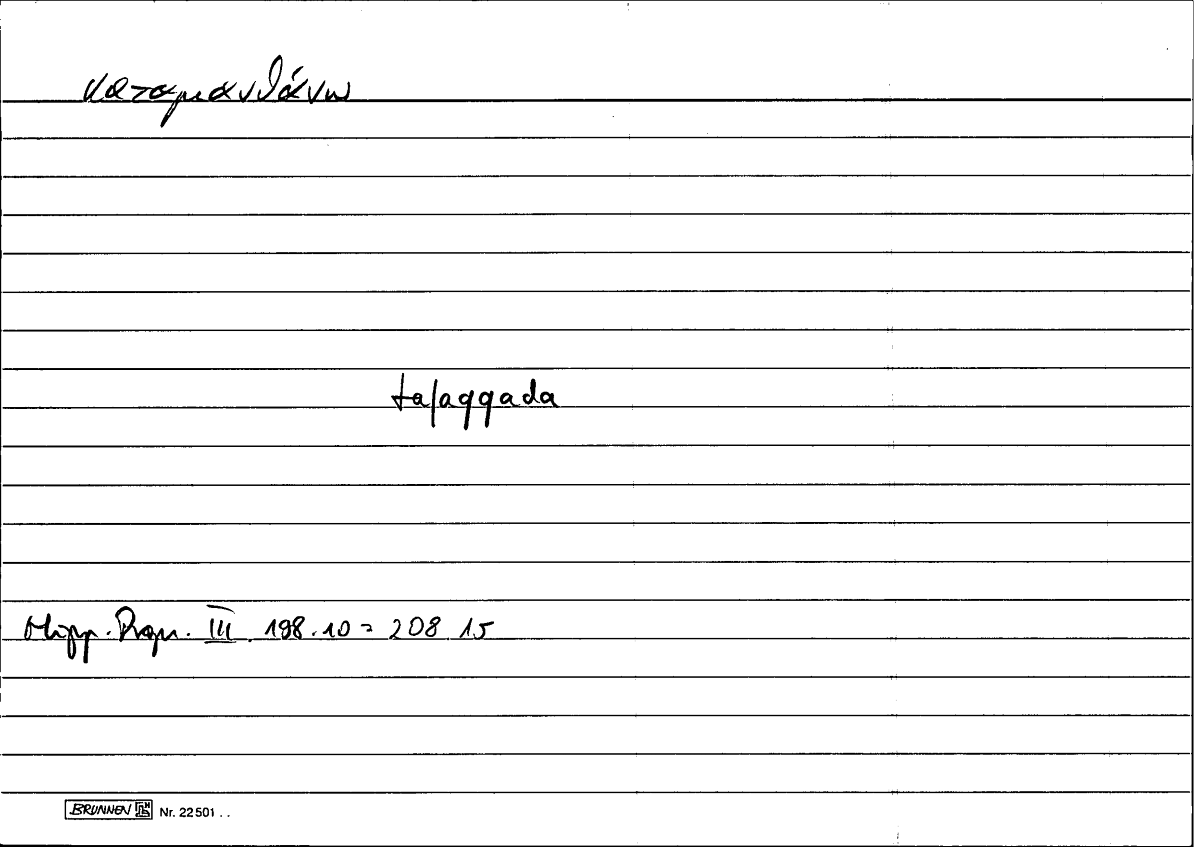 καταμανθάνω
tafaqqada
Hipp. Progn. III 198.10 = 208 15
BRUNNEN Nr. 22 501 . .